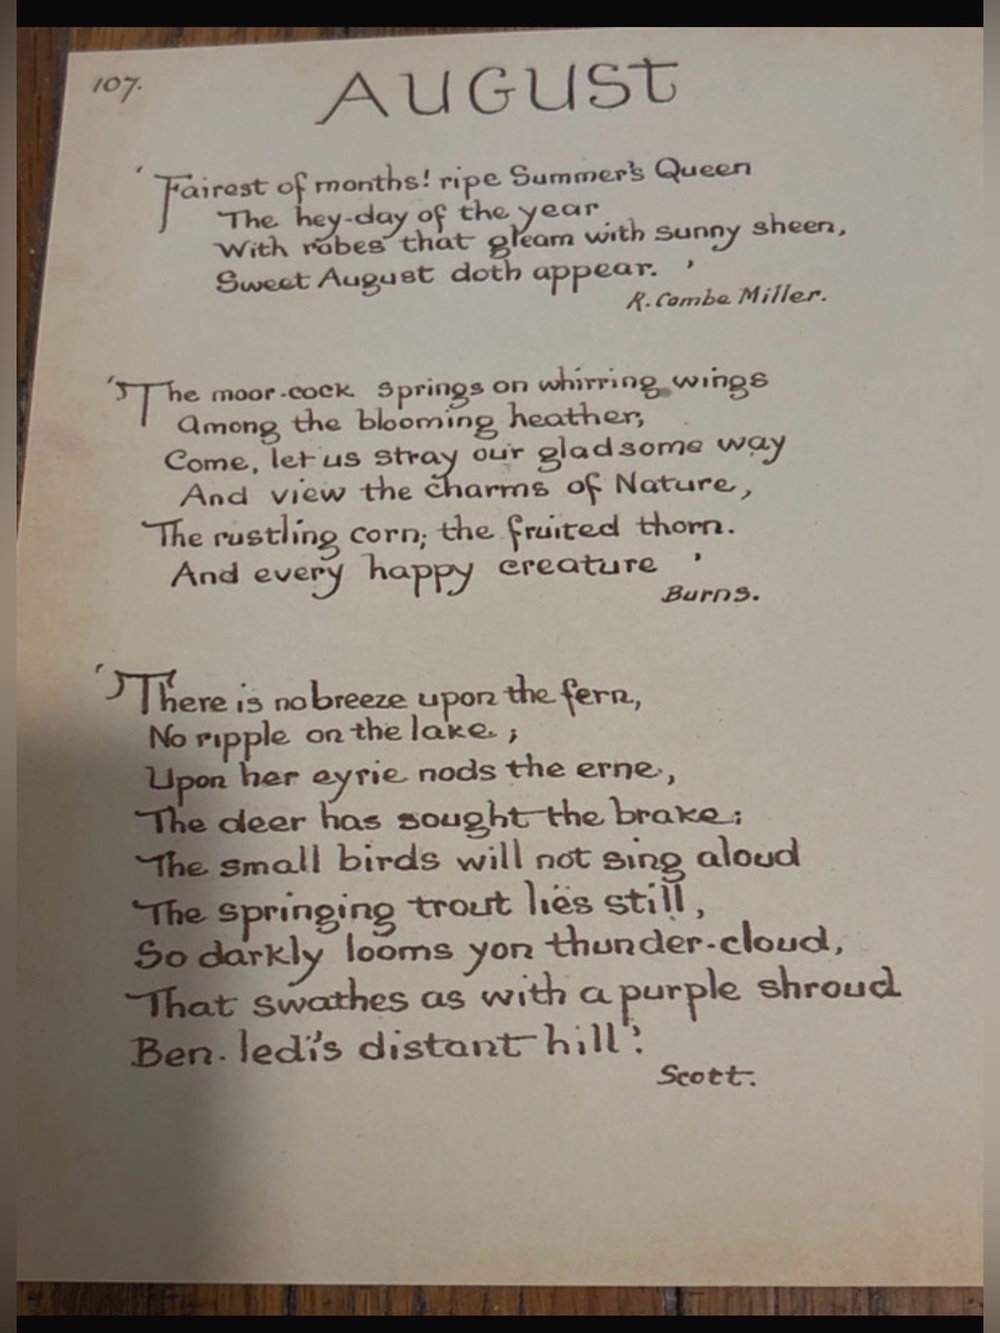 107.
AUGUST
'Fairest of months! ripe Summer's Queen
The hey-day of the year
With robes that gleam with sunny sheen,
Sweet August doth appear.'
R. Combe Miller.
'The moor-cock springs on whirring wings
Among the blooming heather;
Come, let us stray our gladsome way
And view the charms of Nature,
The rustling corn; the fruited thorn.
And every happy creature'
Burns.
'There is no breeze upon the fern,
No ripple on the lake;
Upon her eyrie nods the erne,
The deer has sought the brake;
The small birds will not sing aloud
The springing trout lies still,
So darkly looms yon thunder-cloud,
That swathes as with a purple shroud
Ben-ledi's distant hill.'
Scott.